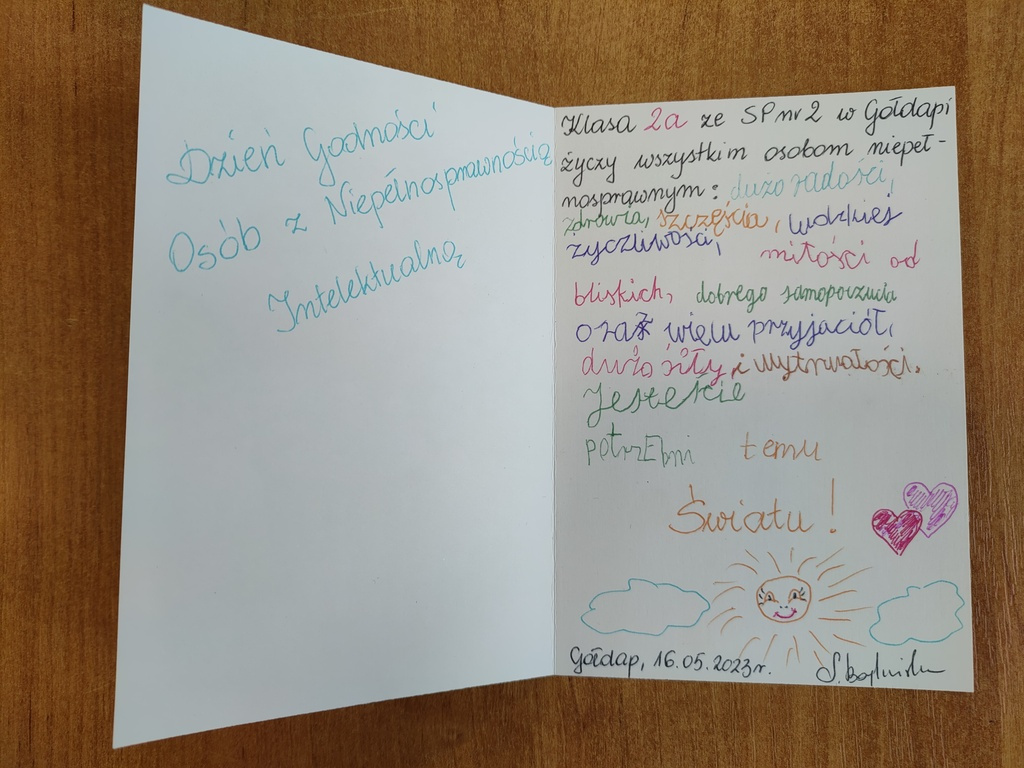 Dzień Godności
Osób z Niepełnosprawnością
Intelektualną
Klasa 2a ze SP nr 2 w Gołdapi
życzy wszystkim osobom niepeł-
nosprawnym: dużo radości,
zdrowia, szczęścia, ludzkiej
życzliwości, miłości od
bliskich, dobrego samopoczucia
oraz wielu przyjaciół,
dużo siły i wytrwałości.
Jesteście
potrzEbni temu
Światu!
Gołdap, 16.05.2023r.